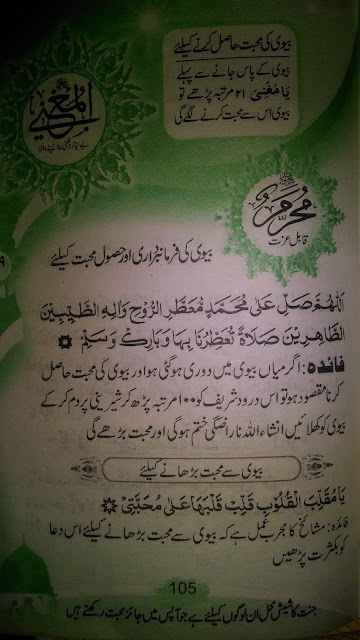 بیوی کی محبت حاصل کرنے کیلئے
بیوی کے پاس جانے سے پہلے
یَامُغْنِیُ ۲۱ مرتبہ پڑھے تو
بیوی اس سے محبت کرنے لگے گی
المُغْنِیُ
بے نیاز و غنی بنا دینے والا
مُحَرَّمٌ
قابل عزت
بیوی کی فرمانبرداری اور حصول محبت کیلئے
اَللّٰهُمَّ صَلِّ عَلٰی مُحَمَّدٍ مُّعَطَّرِ الرُّوْحِ وَاٰلِهِ الطَّيِّبِيْنَ
الطَّاهِرِيْنَ صَلَاةً تُعَطِّرُنَا بِهَا وَبَارِكْ وَسَلِّمْ
فائدہ: اگر میاں بیوی میں دوری ہو گئی ہو اور بیوی کی محبت حاصل
کرنا مقصود ہو تو اس درود شریف کو ۱۰۰ مرتبہ پڑھ کر شیرینی پر دم کر کے
بیوی کو کھلائیں انشاء اللہ ناراضگی ختم ہوگی اور محبت بڑھے گی
بیوی سے محبت بڑھانے کیلئے
يَا مُقَلِّبَ الْقُلُوْبِ قَلِّبْ قَلْبَهَا عَلٰی مُحَبَّتِیْ
فائدہ: مشائخ کا مجرب عمل ہے کہ بیوی سے محبت بڑھانے کیلئے اس دعا
کو بکثرت پڑھیں
105
جنت کا شیش محل ان لوگوں کیلئے ہے جو آپس میں جائز محبت رکھتے ہیں